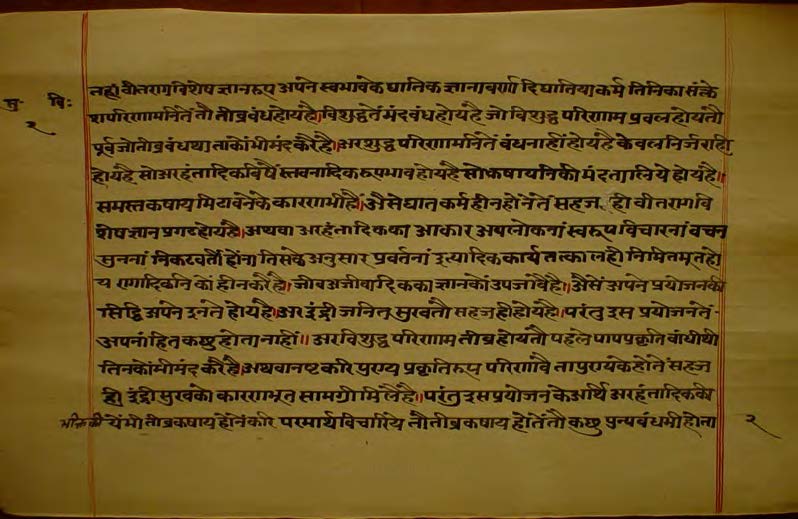 तहां वीतराग विशेष ज्ञानरूप अपने स्वभावके घातिक ज्ञानावर्णादि घातियाकर्म तिनिका संक्ले
शपरिणामनितें तौ तीव्रबंधहोयहै।विशुद्धतें मंदबंधहोयहै जो विशुद्ध परिणाम प्रबलहोयतौ
पूर्वे जोतीव्रबंधथा ताकोंभीमंदकरैहै।अरशुद्धपरिणामनितें बंधनाहींहोयहै केवलनिर्जराही
होयहै सोअरहंतादिकविषैं स्तवनादिकरूपभावहोयहै सोकषायनिकी मंदतालियेहोयहै॥
समस्तकषाय मिटावनेके कारणभीहैं।अैसैंघातकर्महीनहोंनेंतें सहज ही वीतरागवि
शेषज्ञानप्रगटहोयहै।अथवा अरहंतादिकका आकार अवलोकनां स्वरूपविचारनां वचन
सुननां निकटवर्ती होंनां तिसके अनुसार प्रवर्तनां इत्यादिककार्य तत्कालही निमितभूतहो
य रागादिकनिकों हीनकरैहै।जीवअजीवादिकका ज्ञानकोंउपजावैहै।अैसैं अपने प्रयोजनकी
सिद्धि अपने इनते होयहै।अरइंद्रीजनितसुखतौ सहजहीहोयहै।परंतुइस प्रयोजनतें-
अपनां हित कछु होता नाहीं॥अरविशुद्ध परिणाम तीव्रहोयतौ पहले पापप्रकृति बांधीथी
तिनकोंभीमंदकरैहै।अथवानष्टकरि पुण्य प्रकृतिरूप परिणावै तापुण्यकेहोतें सहज
ही इंद्रीसुखको कारणभूत सामग्री मिलैहै।परंतुइसप्रयोजनके अर्थि अरहंतादिककी
भक्तिकी येंभी तीव्रकषायहोंनेंकरि परमार्थविचारिये तौतीव्रकषायहोतेंतौ कछु पुन्यबंधभीहोना
२
२